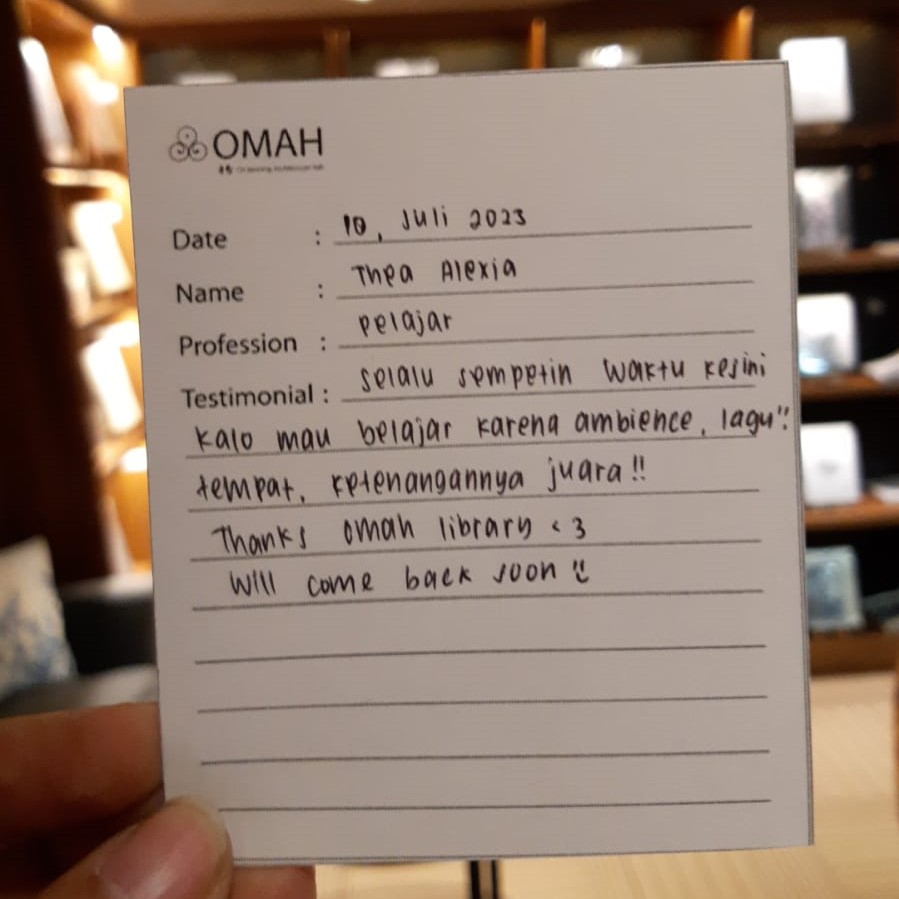 OMAH
Date : 10, Juli 2023
Name : Thea Alexia
Profession : pelajar
Testimonial : selalu sempetin waktu kesini
kalo mau belajar karena ambience, lagu",
tempat, ketenangannya juara!!
Thanks omah library <3
Will come back soon ü